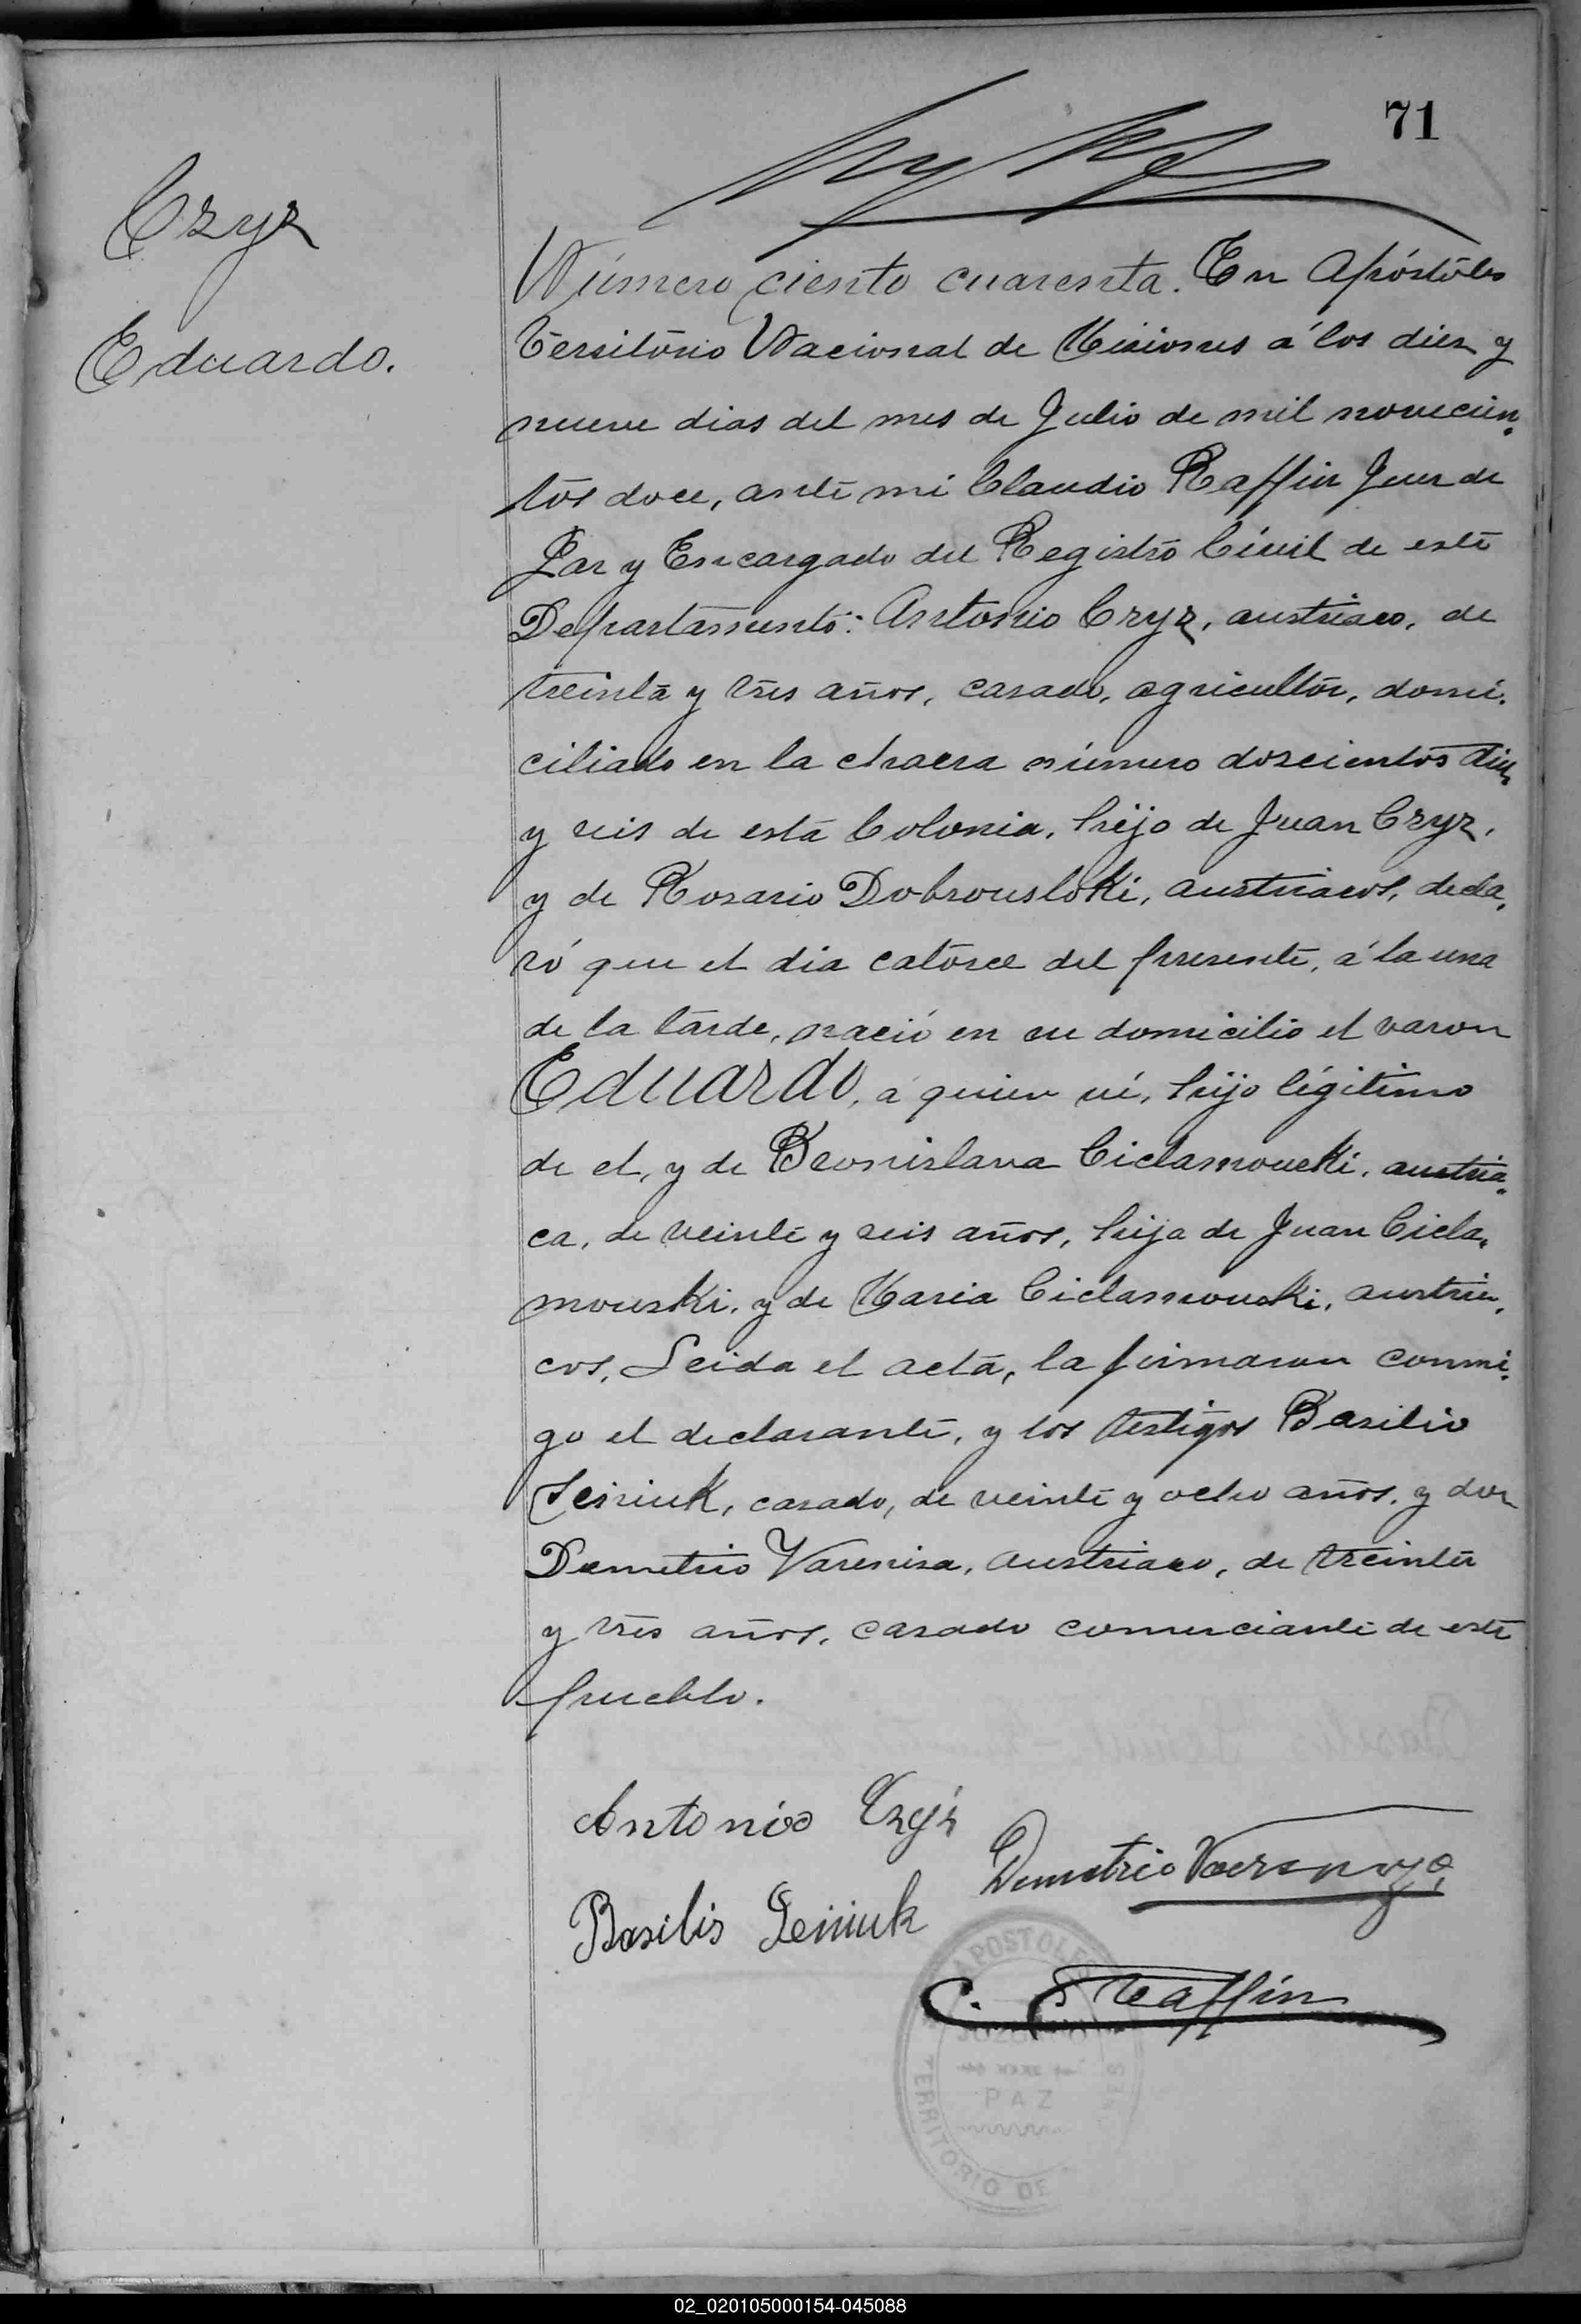 71
Czyz
Eduardo.
Número ciento cuarenta. En Apóstoles
Territorio Nacional de Misiones á los diez y
nueve dias del mes de Julio de mil novecien-
tos doce, ante mi Claudio Raffin Juez de
Paz y Encargado del Registro Civil de este
Departamento: Antonio Czyz, austriaco, de
treinta y tres años, casado, agricultor, domi-
ciliado en la chacra número doscientos diez
y seis de esta Colonia, hijo de Juan Czyz,
y de Rosario Dobrousloki, austriacos, decla-
ró que el dia catorce del presente, á la una
de la tarde, nació en su domicilio el varon
Eduardo, á quien ví, hijo légitimo
de el, y de Bronislava Ciclamouski, austria-
ca, de veinte y seis años, hija de Juan Cicla-
mouski, y de Maria Ciclamouski, austria-
cos. Leida el acta, la firmaron conmi-
go el declarante, y los testigos Basilio
Seniuk, casado, de veinte y ocho años, y don
Demetrio Varenisa, austriaco, de treinta
y tres años, casado comerciante de este
pueblo.
Antonio Czyż
Demetrio
Basilis Seniuk
C. Raffin
APOSTOLES
PAZ
TERRITORIO DE
02_020105000154-045088